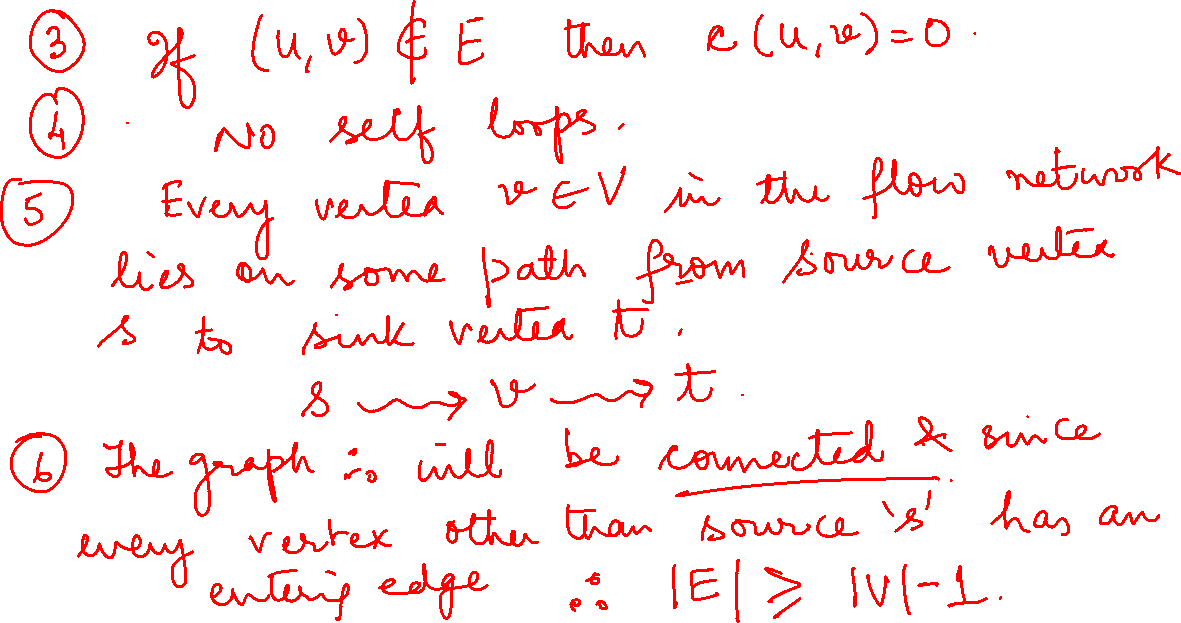 ③ If (u,v) ∉ E then c(u,v)=0.
④ . No self loops.
⑤ Every vertex v ∈ V in the flow network
lies on some path from source vertex
s to sink vertex t.
s ⇝ v ⇝ t.
⑥ The graph ∴ will be connected & since
every vertex other than source 's' has an
entering edge ∴ |E| ≥ |V|-1.